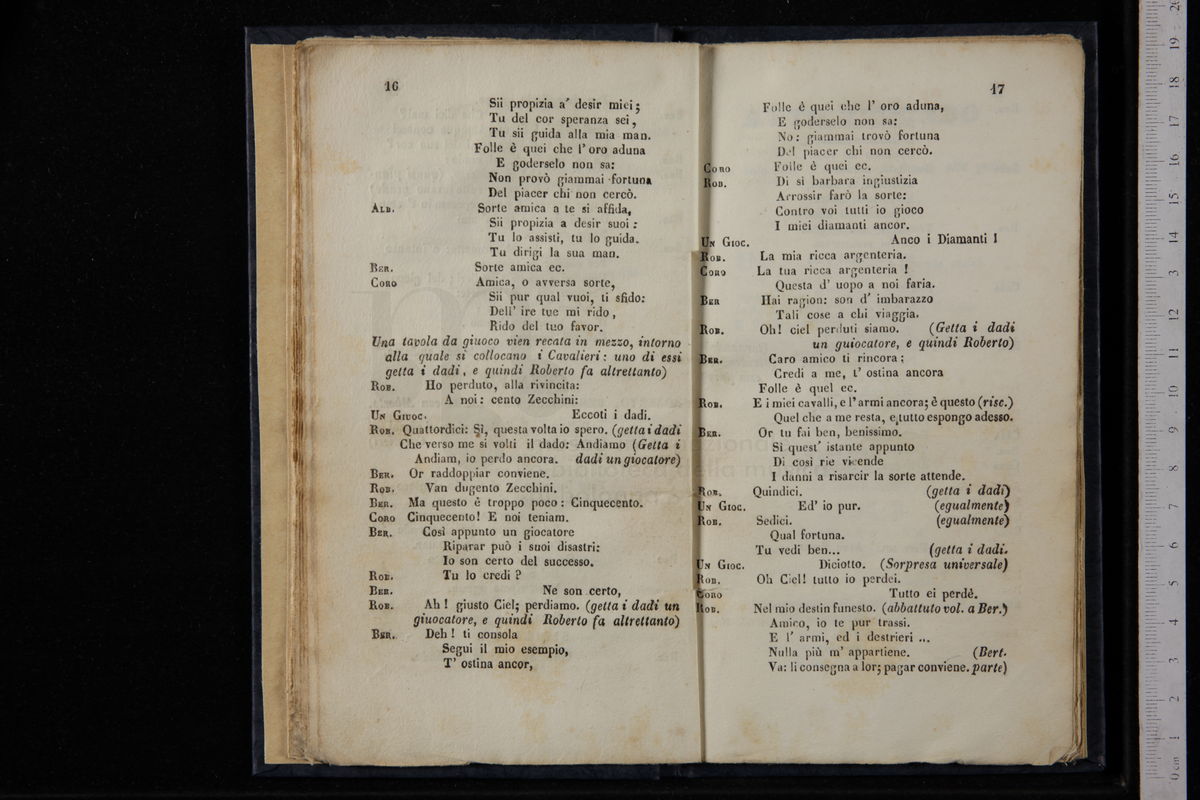 16
Sii propizia a' desir miei;
Tu del cor speranza sei,
Tu sii guida alla mia man.
Folle è quei che l' oro aduna
E goderselo non sa:
Non provò giammai fortuna
Del piacer chi non cercò.
ALB. Sorte amica a te si affida,
Sii propizia a desir suoi:
Tu lo assisti, tu lo guida.
Tu dirigi la sua man.
BER. Sorte amica ec.
CORO Amica, o avversa sorte,
Sii pur qual vuoi, ti sfido:
Dell' ire tue mi rido,
Rido del tuo favor.
Una tavola da giuoco vien recata in mezzo, intorno
alla quale si collocano i Cavalieri: uno di essi
getta i dadi, e quindi Roberto fa altrettanto)
ROB. Ho perduto, alla rivincita:
A noi: cento Zecchini:
UN GIUOC. Eccoti i dadi.
ROB. Quattordici: Sì, questa volta io spero. (getta i dadi
Che verso me si volti il dado: Andiamo (Getta i
Andiam, io perdo ancora. dadi un giocatore)
BER. Or raddoppiar conviene.
ROB. Van dugento Zecchini.
BER. Ma questo è troppo poco: Cinquecento.
CORO Cinquecento! E noi teniam.
BER. Così appunto un giocatore
Riparar può i suoi disastri:
Io son certo del successo.
ROB. Tu lo credi?
BER. Ne son certo,
ROB. Ah! giusto Ciel; perdiamo. (getta i dadi un
giuocatore, e quindi Roberto fa altrettanto)
BER. Deh! ti consola
Segui il mio esempio,
T' ostina ancor,
17
Folle è quei che l' oro aduna,
E goderselo non sa:
No: giammai trovò fortuna
Del piacer chi non cercò.
CORO Folle è quei ec.
ROB. Di sì barbara ingiustizia
Arrossir farò la sorte:
Contro voi tutti io gioco
I miei diamanti ancor.
UN GIOC. Anco i Diamanti!
ROB. La mia ricca argenteria.
CORO La tua ricca argenteria!
Questa d' uopo a noi faria.
BER Hai ragion: son d' imbarazzo
Tali cose a chi viaggia.
ROB. Oh! ciel perduti siamo. (Getta i dadi
un guiocatore, e quindi Roberto)
BER. Caro amico ti rincora;
Credi a me, t' ostina ancora
Folle è quel ec.
ROB. E i miei cavalli, e l' armi ancora; è questo (risc.)
Quel che a me resta, e tutto espongo adesso.
BER. Or tu fai ben, benissimo.
Sì quest' istante appunto
Di così rie vicende
I danni a risarcir la sorte attende.
ROB. Quindici. (getta i dadi)
UN GIOC. Ed' io pur. (egualmente)
ROB. Sedici. (egualmente)
Qual fortuna.
Tu vedi ben... (getta i dadi.
UN GIOC. Diciotto. (Sorpresa universale)
ROB. Oh Ciel! tutto io perdei.
CORO Tutto ei perdé.
ROB. Nel mio destin funesto. (abbattuto vol. a Ber.)
Amico, io te pur trassi.
E l' armi, ed i destrieri ...
Nulla più m' appartiene. (Bert.
Va: li consegna a lor; pagar conviene. parte)